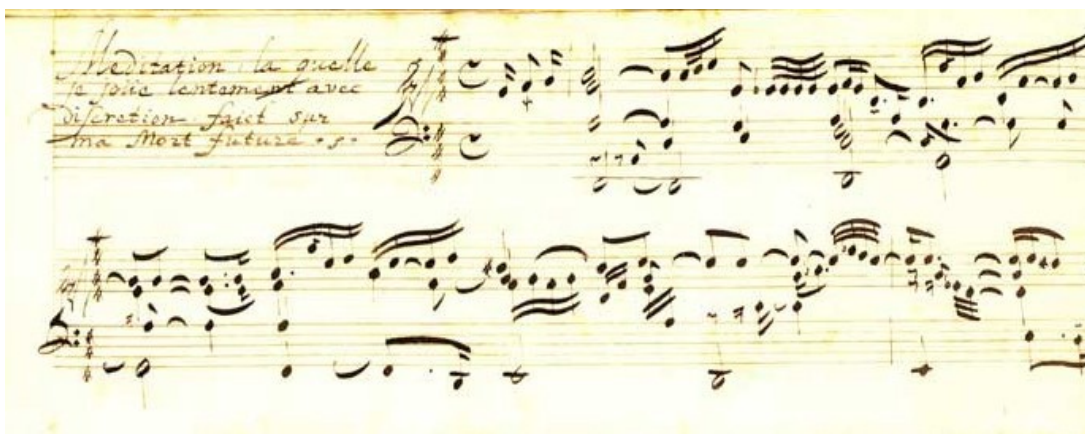 Meditation, la quelle
se joüe lentement avec
discretion faict sur
ma Mort future .s.